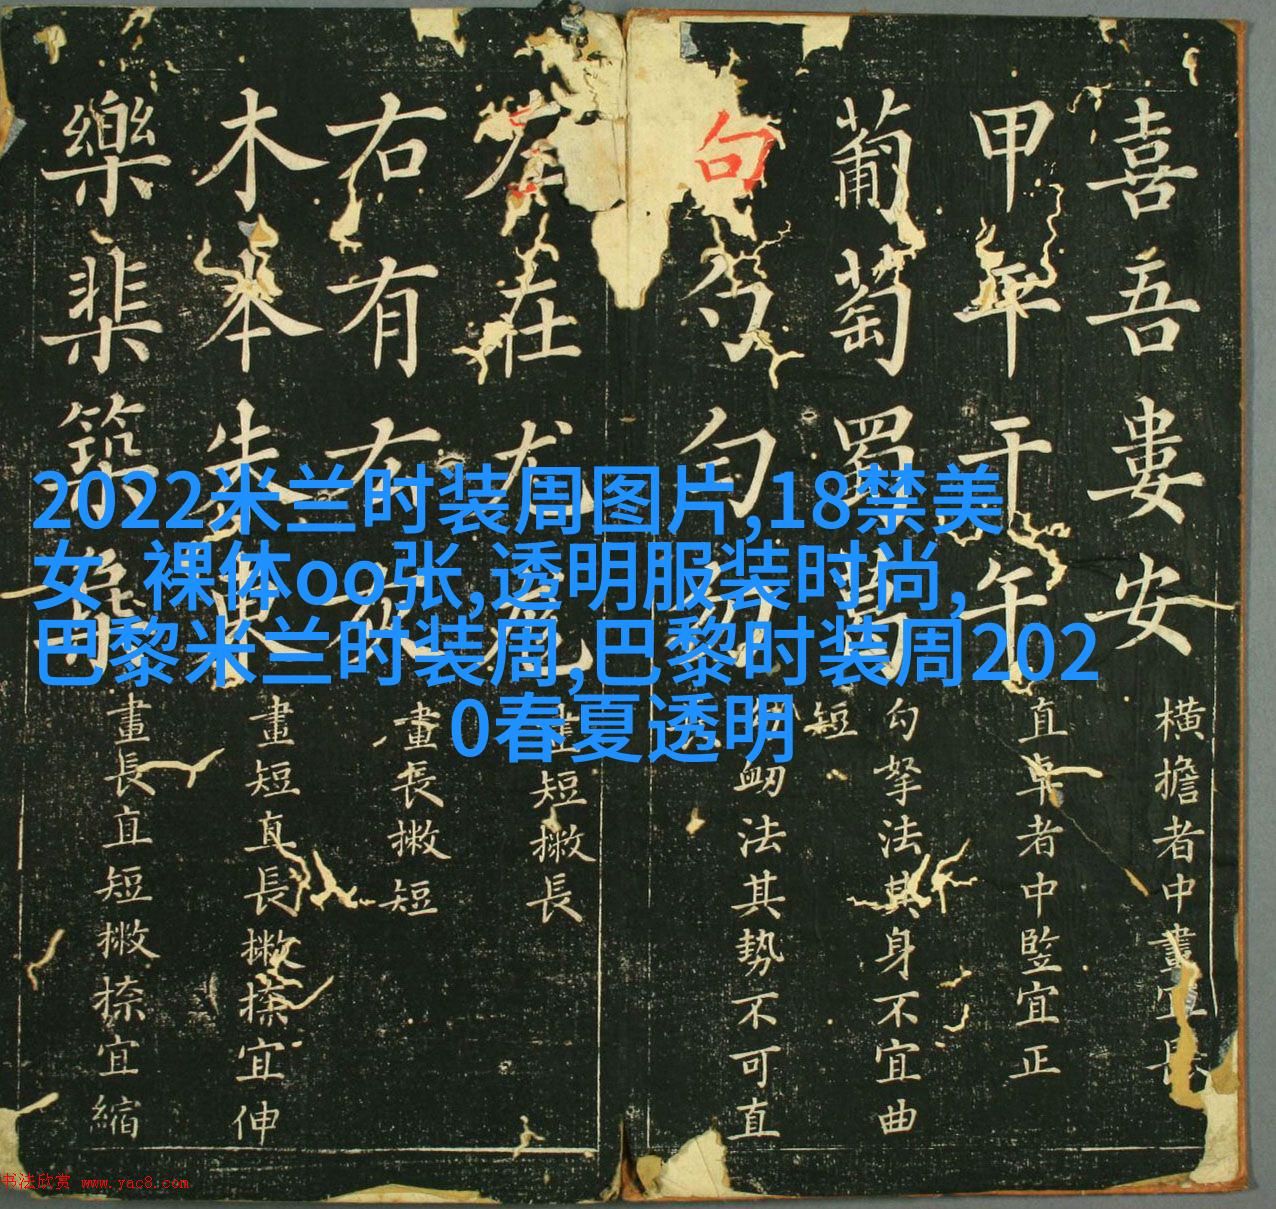 2022米兰时装周图片,18禁美
女 裸体oo张,透明服装时尚,
巴黎米兰时装周,巴黎时装周202
0春夏透明
喜吾婁安
橫擔者中畫宜長
甲平干午
直卓者中監宜正
葡萄蜀
勾拏法其身不宜曲
短
句勺勻
法其勢不可直
左在尤
畫短撇長
右有
畫長撇短
木本朱東
畫短直長撇捺宜伸
樂棐築
畫長直短撇捺宜縮
书法欣赏 www.yac8.com